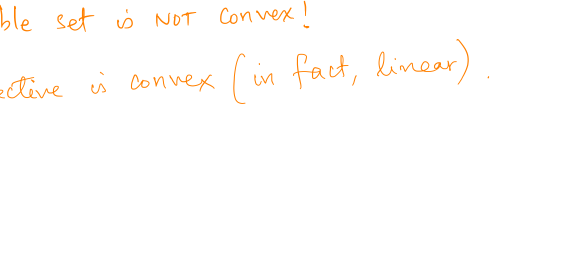 ble set is NOT convex!
ective is convex (in fact, linear).